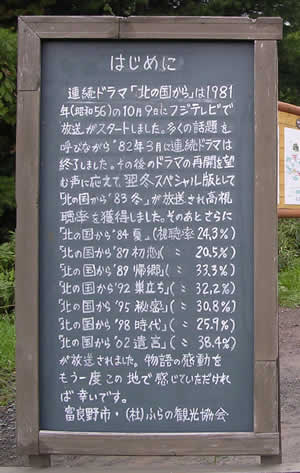 はじめに
連続ドラマ「北の国から」は1981
年(昭和56)の10月9日にフジテレビで
放送がスタートしました。多くの話題を
呼びながら'82年3月に連続ドラマは
終了しました。その後のドラマの再開を望
む声に応えて、翌冬スペシャル版として
「北の国から'83冬」が放送され高視
聴率を獲得しました。そのあとさらに
「北の国から'84夏」(視聴率24.3%)
「北の国から'87初恋(〃20.5%)
「北の国から'89帰郷」(〃33.3%)
「北の国から'92巣立ち」(〃32.2%)
「北の国から'95秘密」(〃30.8%)
「北の国から'98時代」(〃25.9%)
「北の国から'02遺言」(〃38.4%)
が放送されました。物語の感動を
もう一度この地で感じていただけれ
ば幸いです。
富良野市・(社)ふらの観光協会